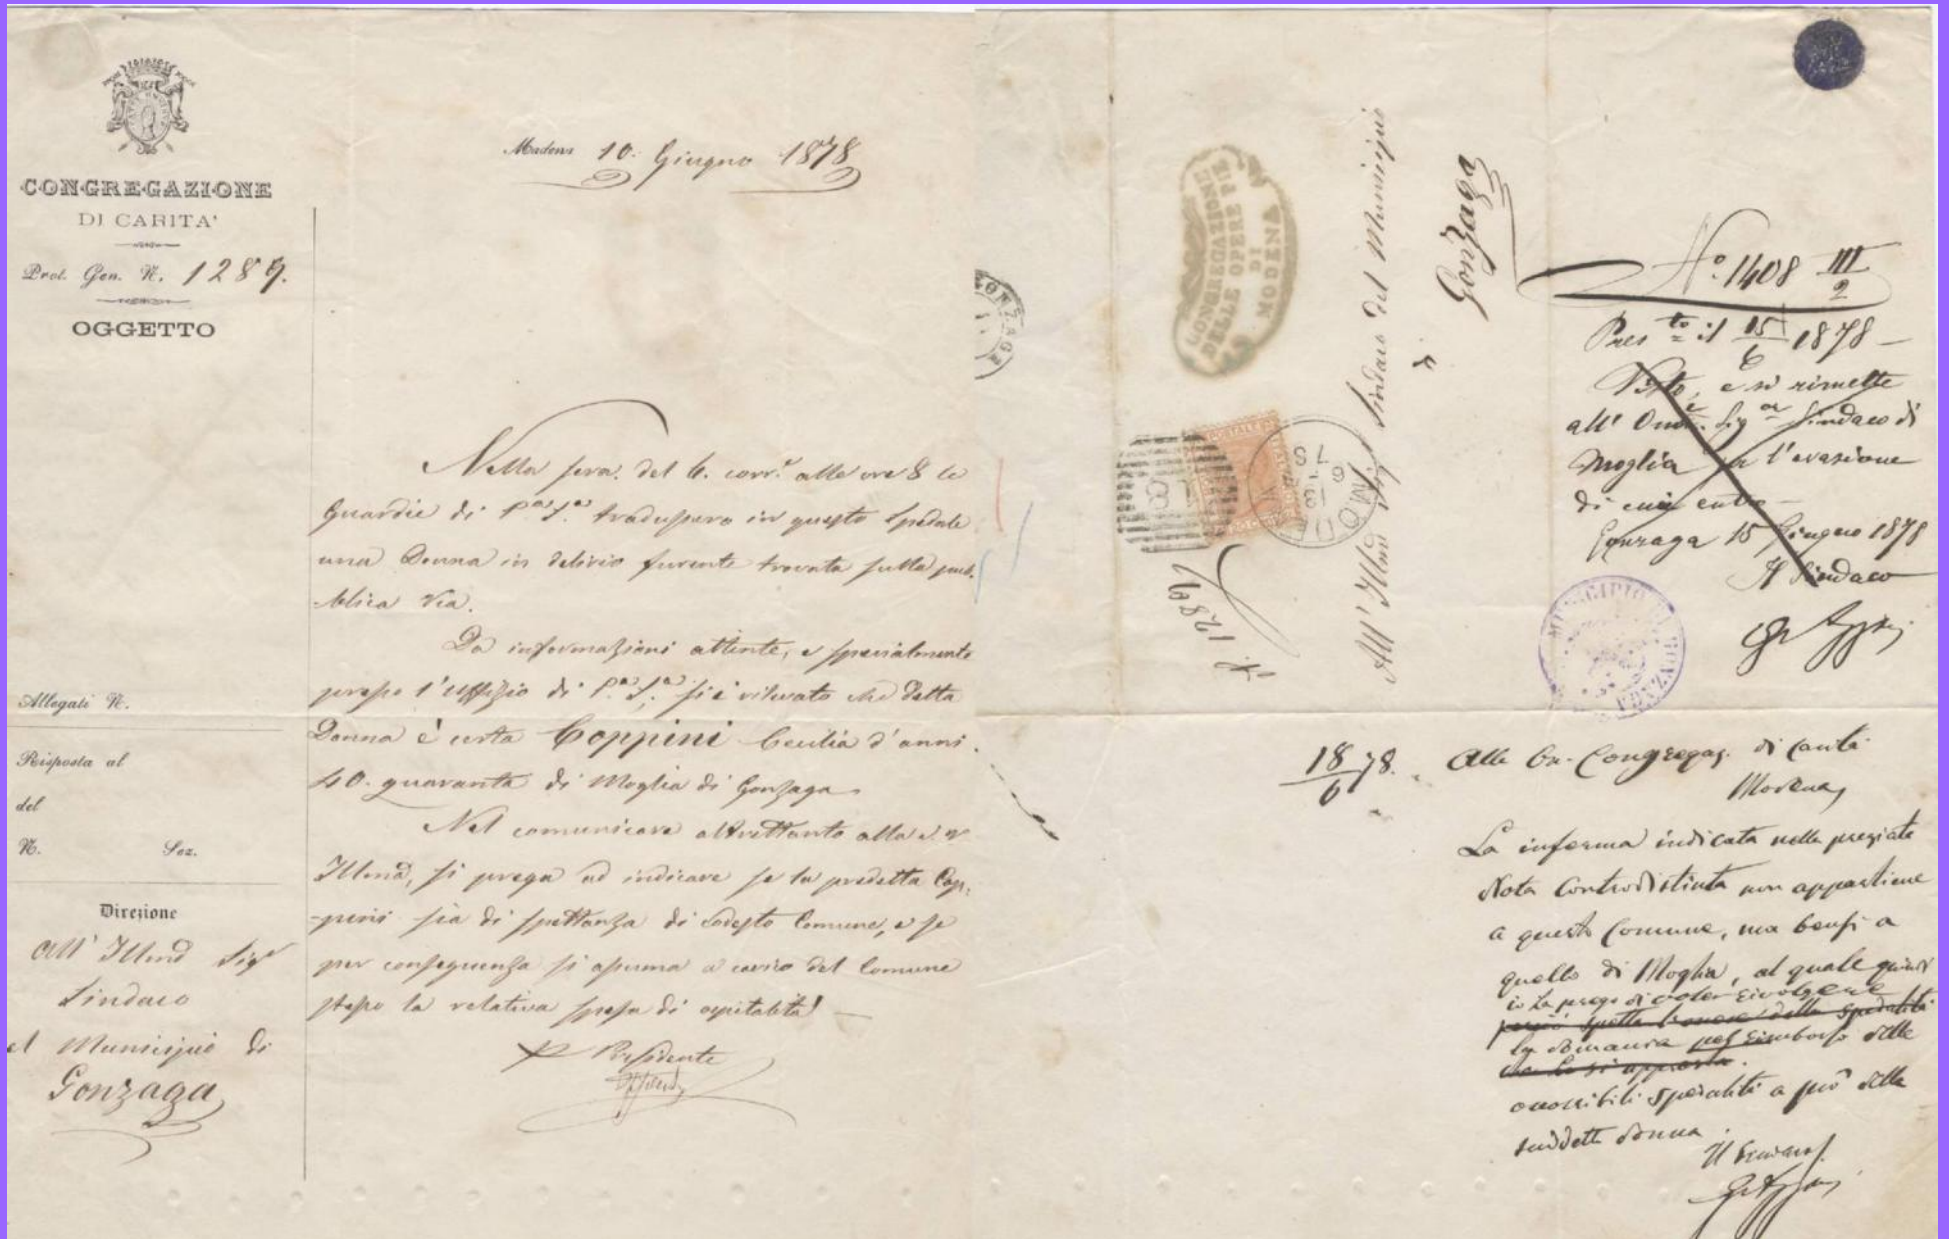 CONGREGAZIONE
DI CARITA'
Prot. Gen. N. 1289.
OGGETTO
Allegati N.
Risposta al
del
N. Sez.
Direzione
All' Illmo Sigr
Sindaco
el Municipio di
Gonzaga
Modena 10. Giugno 1878
Nella sera del 6. corre. alle ore 8 le
Guardie di Pa. Sa. tradussero in questo Spedale
una Donna in delirio furente trovata sulla pub-
-blica Via.
Da informazioni attinte, e specialmente
presso l'Uffizio di Pa. Sa. si è rilevato che detta
Donna è certa Coppini Cecilia d'anni
40. quaranta di Moglia di Gonzaga.
Nel comunicare altrettanto alla S. V.
Illma, si prega ad indicare se la predetta Cop-
-pini sia di spettanza di codesto Comune, e se
per conseguenza si assuma a carico del Comune
stesso la relativa spesa di ospitalità!
Il Presidente
CONGREGAZIONE
DELLE OPERE PIE
DI
MODENA
All' Illmo Sig. Sindaco del Municipio
di
Gonzaga
N. 1289
MODENA
13
6
78
GONZAGA
No. 1408 III/2
Presto il 15/6 1878
Visto, e si rimette
all' Onole. Sigor Sindaco di
Moglia per l'evasione
di cui entro
Gonzaga 15 Giugno 1878
Il Sindaco
MUNICIPIO DI GONZAGA
18/6 78. Alla On. Congregaz. di Carità
Modena
La inferma indicata nella pregiata
Nota controdistinta non appartiene
a questo Comune, ma bensì a
quello di Moglia, al quale quindi
io La prego di voler rivolgere
perciò spetta l'onere della spedalità
la domanda pel rimborso delle
spedalità a prò della
suddetta donna.
Il Sindaco